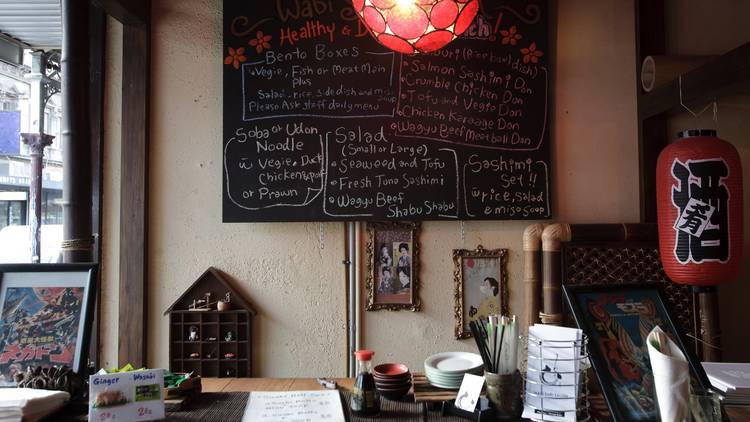 Wabi
Healthy & D
Bento Boxes
Vegie, Fish or Meat Main
plus
Salad, rice, side dish and miso soup
Please Ask staff daily menu
(Rice bowl dish)
Salmon Sashimi Don
Crumble Chicken Don
Tofu and Vegie Don
Chicken Karaage Don
Wagyu Beef Meatball Don
Soba or Udon
Noodle
w Vegie, Duck
Chicken & pork
or Prawn
Salad
(Small or Large)
Seaweed and Tofu
Fresh Tuna Sashimi
Wagyu Beef
Shabu Shabu
Sashimi
Set!!
w rice, Salad
& miso soup
酒
肴
Ginger
Wasabi
20¢
20¢